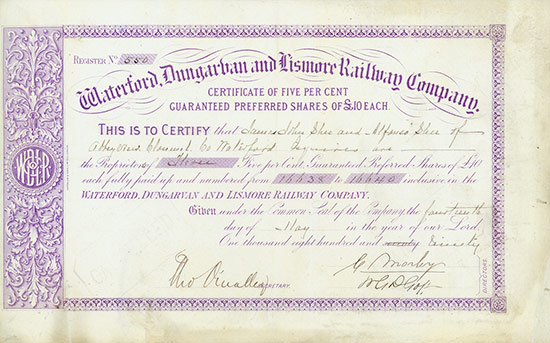 REGISTER No 550
Waterford, Dungarvan and Lismore Railway Company.
CERTIFICATE OF FIVE PER CENT
GUARANTEED PREFERRED SHARES OF £10 EACH.
THIS IS TO CERTIFY that James John Shee and Alfonso Shee of
Abbeyview Clonmel, Co Waterford Esquires are
the Proprietors of Three Five per Cent. Guaranteed Preferred Shares of £10
each fully paid up and numbered from 16638 to 16640 inclusive in the
WATERFORD, DUNGARVAN AND LISMORE RAILWAY COMPANY.
Given under the Common Seal of the Company, the fourteenth
day of May in the year of our Lord
One thousand eight hundred and seventy ninety
C. Morley
SECRETARY.
DIRECTORS.